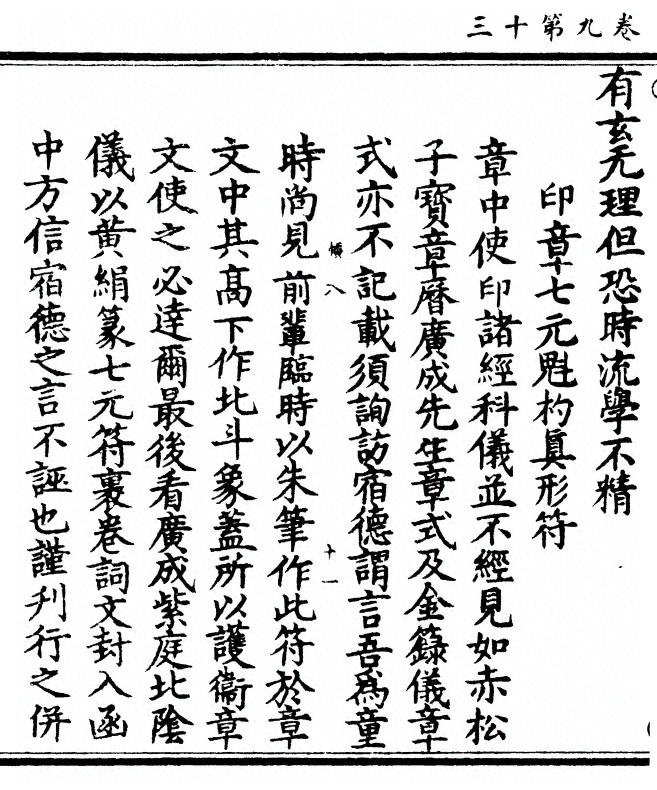 三十第九卷
有玄无理但恐時流學不精
印章七元魁杓真形符
章中使印諸經科儀並不經見如赤松
子寶章曆廣成先生章式及金籙儀章
式亦不記載須詢訪宿德謂言吾為童
傾八
十一
時尚見前輩臨時以朱筆作此符於章
文中其高下作北斗象蓋所以護衞章
文使之必達爾最後看廣成紫庭北陰
儀以黃絹篆七元符裹卷詞文封入函
中方信宿德之言不誣也謹刋行之併